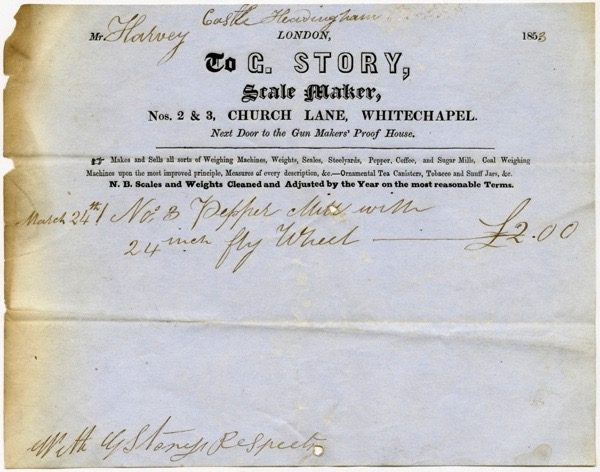 Castle Headingham
Mr. Harvey LONDON, 1853
To G. STORY,
Scale Maker,
Nos. 2 & 3, CHURCH LANE, WHITECHAPEL.
Next Door to the Gun Makers' Proof House.
☞ Makes and Sells all sorts of Weighing Machines, Weights, Scales, Steelyards, Pepper, Coffee, and Sugar Mills, Coal Weighing
Machines upon the most improved principle, Measures of every description, &c.—Ornamental Tea Canisters, Tobacco and Snuff Jars, &c.
N. B. Scales and Weights Cleaned and Adjusted by the Year on the most reasonable Terms.
March 24th 1 No. 3 Pepper Mill with
24 inch fly Wheel — £2.00
With G Storys Respects